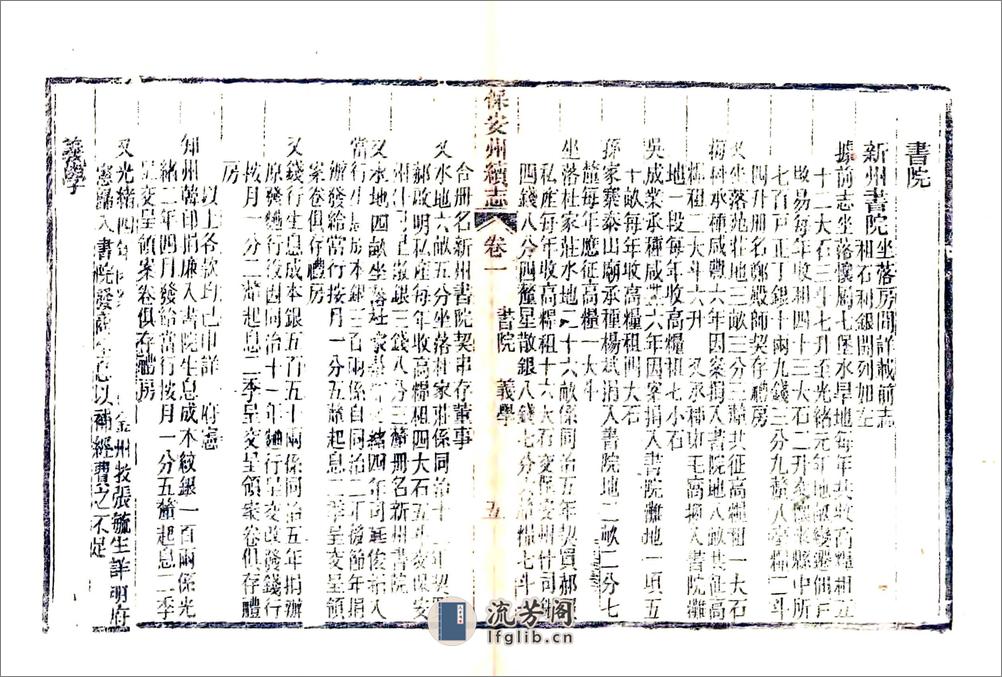 書院
新州書院坐落房間詳載前志
租石利銀開列如左
據前志坐落懷屬七堡水旱地每年共收高糧租五
十二大石三斗七升至光緒元年地
改易每年收租四十三大石二升 懷來縣中所
七百戶正丁銀十兩九錢三分九釐八毫糧二斗
四升册名鄭殿師契存禮房
又坐落苑壯地三畝三分三釐共征高糧租一大石
梅科承種咸豐六年因案捐入書院地八畝共征高
糧租二大斗六升 又礬山王高捐入書院灘
地一段每年收高糧租七小石
吳成業承種咸豐六年因案捐入書院灘地一項五
十畝每年收高糧租四大石
孫家寨泰山廟承種楊斌捐入書院地二畝二分七
釐每年應征高糧一大斗
坐落杜家莊水地二十六畝係同治五年契買郝
私產每年收高糧租十六大石交保安州
四錢八分四釐星散銀八錢七分 糧七斗
保安州續志
卷一
書院 義學
五
合册名新州書院契串存董事
又水地六畝五分坐落杜家莊係同治十 年契
郝啟明私產每年收高糧租四大石五斗交保安
州 銀三錢八分三釐册名新州書院
又水地四畝坐落杜家 緒四年同 捐入
當行生息成本銀三百兩係自同治二年發節年捐
辦發給當行按月一分五釐起息二季呈交呈領
案卷俱存禮房
又錢行生息成本銀五百五十兩係同治五年捐辦
原發 行同治十一年 行呈交改發錢行
按月一分二釐起息二季呈交呈領案卷俱存禮
房
以上各款均已申詳 府憲
知州韓印捐廉入書院生息成本紋銀一百兩係光
緒二年四月發給當行按月一分五釐起息二季
呈交呈領案卷俱存禮房
又光緒四年 金州教張毓生詳明府
憲歸入書院發商生息以補經費之不足
義學
流芳阁
lfglib.cn